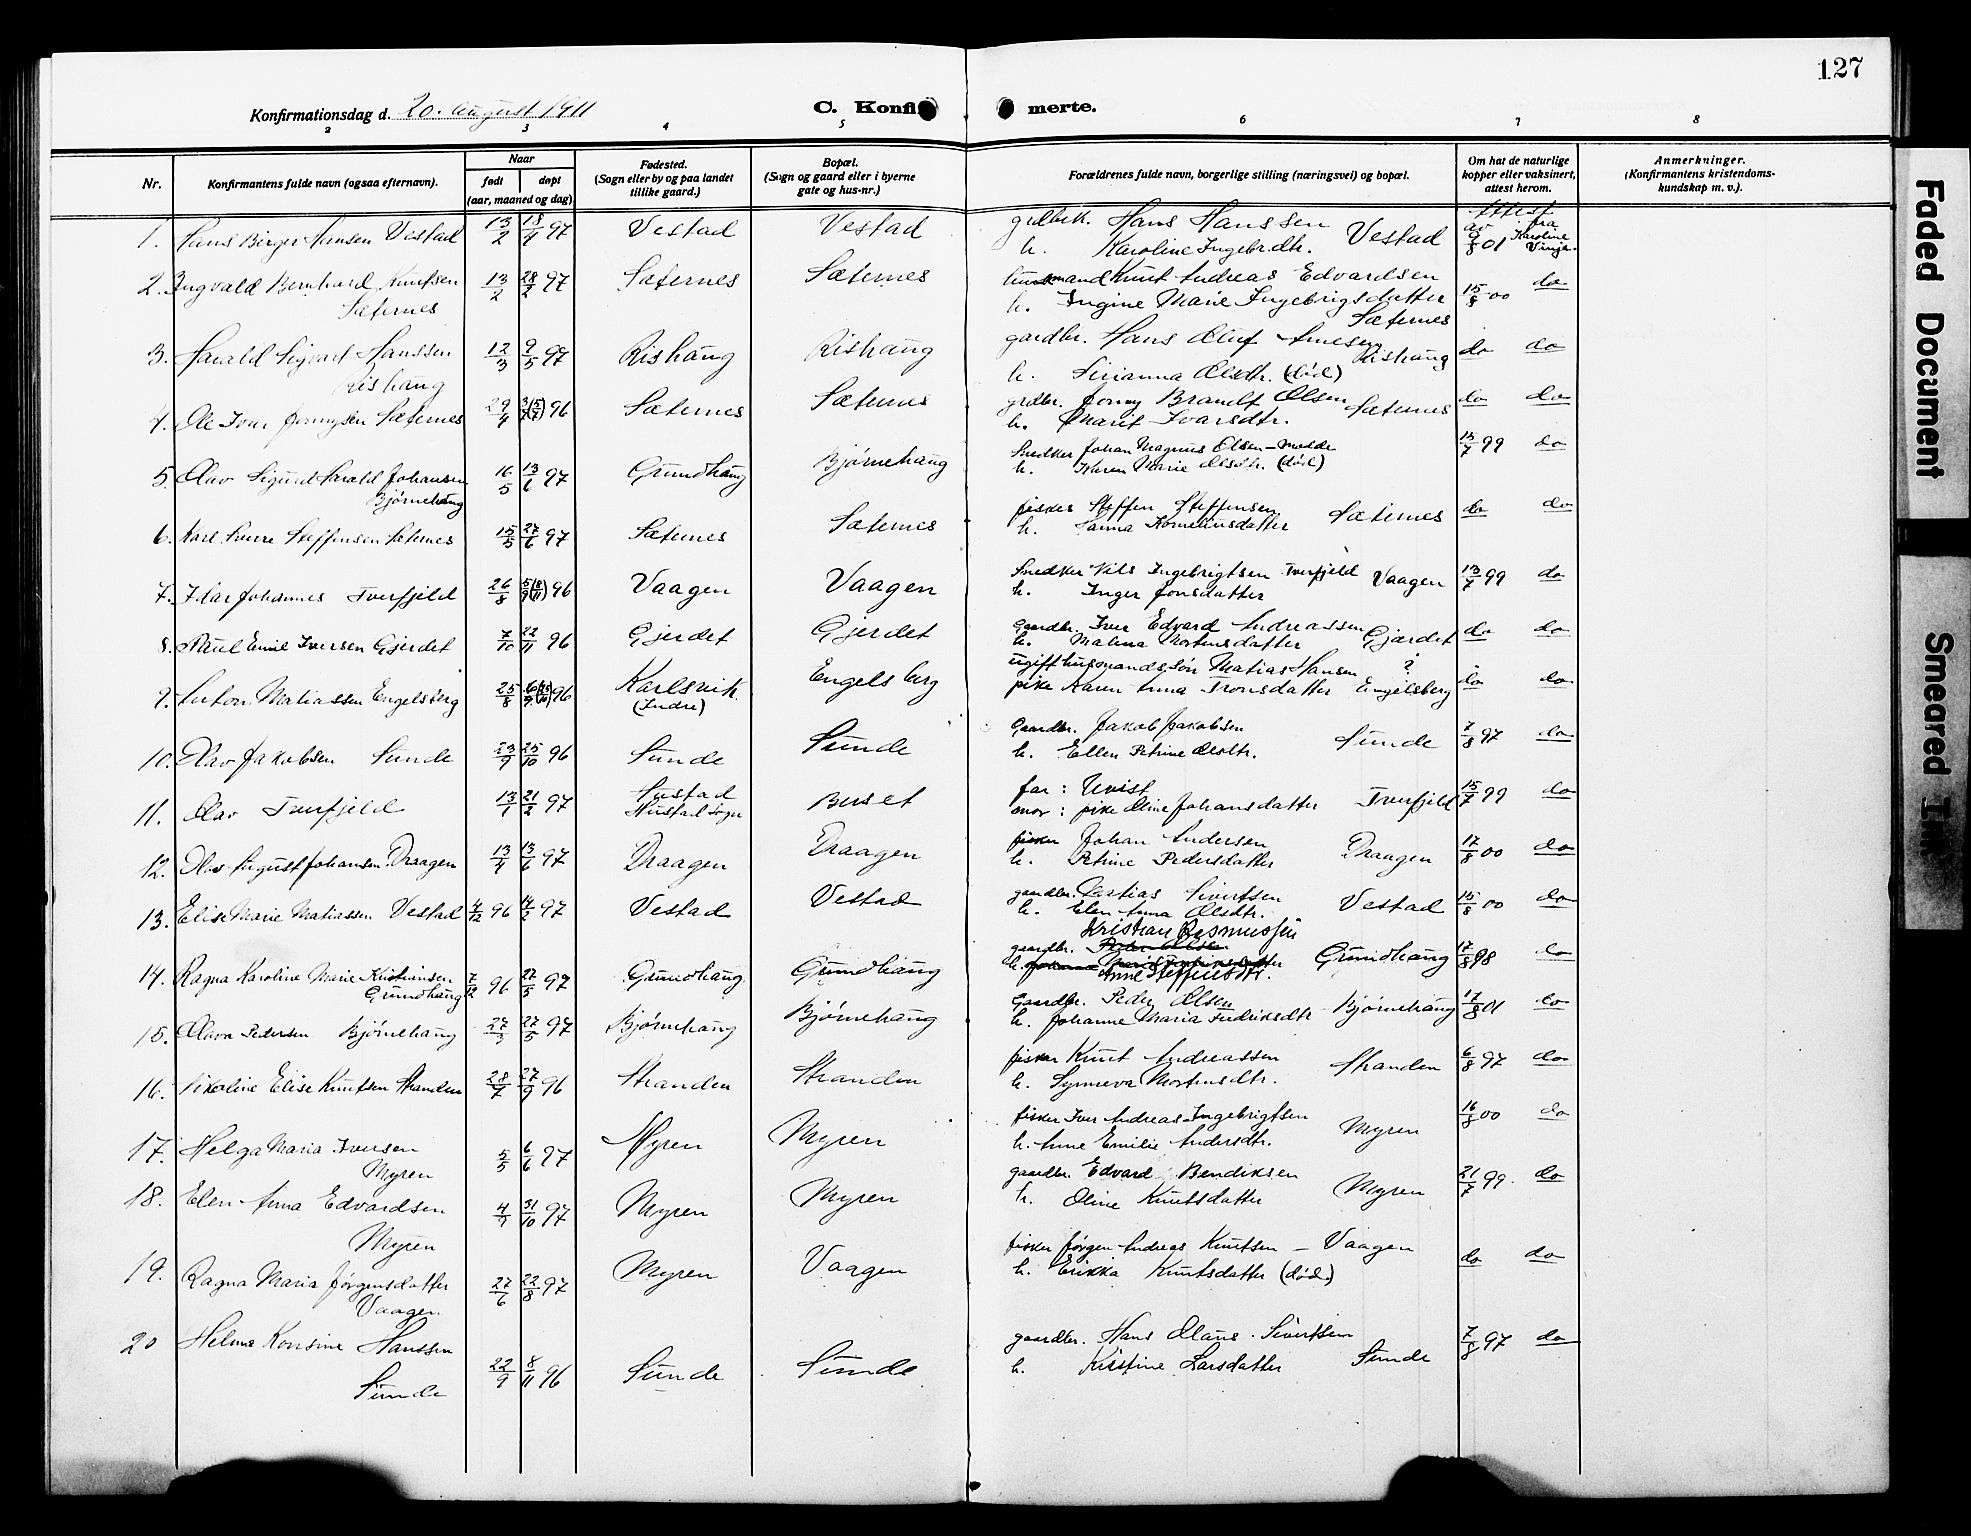 127
Konfirmationsdag d. 20. august 1911
C. Konfi merte.
2 3 4 5 6 7 8
Nr.
Konfirmantens fulde navn (ogsaa efternavn).
Naar
født døpt
(aar, maaned og dag)
Fødested.
(Sogn eller by og paa landet
tillike gaard.)
Bopæl.
(Sogn og gaard eller i byerne
gate og hus-nr.)
Forældrenes fulde navn, borgerlige stilling (næringsvei) og bopæl.
Om hat de naturlige
kopper eller vaksinert,
attest herom.
Anmerkninger.
(Konfirmantens kristendoms-
kundskap m. v.).
1. Hans Birger Hansen Vestad 13/2 18/4 97 Vestad Vestad Hans Hanssen Vestad Attest av 9/8 01 fra Karoline
h. Karoline Ingebr.dtr.
2. Ingvald Bernhard Knutsen 13/2 28/2 97 Sæternes Sæternes Knut Andreas Edvardsen 15/8 00 do
Sæternes h. Ingine Marie Ingebrigsdatter
Sæternes
3. Harald Sigvart Hanssen 12/3 9/5 97 Rishaug Rishaug gardbr. Hans Oluf Rishaug do do
Rishaug h. Olsdtr. (død)
4. Ole Ivar Jonnysen Sæternes 29/4 96 Sæternes Sæternes Olsen Sæternes do do
h. Marit Ivarsdtr.
5. Olav Sigurd Harald Johansen 16/5 13/6 97 Grundhaug Bjørnehaug Snedker Johan Magnus Olsen - Molde 15/7 99 do
Bjørnehaug h. Karen Marie Olsdtr. (død)
6. Karl Sverre Steffensen Sæternes 15/5 27/6 97 Sæternes Sæternes fisker Steffen Steffensen Sæternes do do
h. Hanna Kornelinsdatter
7. Johannes Tverfjeld 26/8 96 Vaagen Vaagen Snedker Nils Ingebrigtsen Tverfjeld Vaagen 13/7 99 do
h. Inger Jonsdatter
8. Paul Emil Iversen Gjerdet 7/10 22/11 96 Gjerdet Gjerdet Gaardbr. Iver Edvard Andreassen Gjærdet do do
h. Malena Mortensdatter
9. Anton Matiassen Engelsberg 25/8 96 Karlsvik (Indre) Engelsberg ugift husmandssøn Matias Hansen ? do do
pike Karen Anna Tronsdatter Engelsberg
10. Olav Jakobsen Sunde 23/9 25/10 96 Sunde Sunde Gaardbr. Jakob Jakobsen Sunde 7/8 97 do
h. Ellen Petrine Olsdtr.
11. Olav Tverfjeld 13/1 21/2 97 Hustad Hustad sogn Buset far: Uvist
mor: pike Oline Johansdatter Tverfjeld 15/7 99 do
12. Olav August Johansen Draagen 13/4 13/6 97 Draagen Draagen fisker Johan Andersen Draagen 17/8 00 do
h. Petrine Pedersdatter
13. Elise Marie Matiassen Vestad 4/12 96 14/2 97 Vestad Vestad gaardbr. Matias Sivertsen Vestad 15/8 00 do
h. Elen Anna Olsdtr.
Kristian Rasmussen
14. Ragna Karoline Marie Kristiansen 7/12 96 27/5 97 Grundhaug Grundhaug gaardbr. Peder Olsen Grundhaug 17/8 98 do
Grundhaug h. Anne Steffensdtr.
15. Olava Pedersen Bjørnehaug 27/3 27/5 97 Bjørnehaug Bjørnehaug Gaardbr. Peder Olsen Bjørnehaug 17/8 01 do
h. Johanne Maria Fredriksdtr
16. Nikoline Elise Knutsen Stranden 28/7 27/9 96 Stranden Stranden fisker Knut Andreassen Stranden 6/8 97 do
h. Synneva Mortensdtr.
17. Helga Maria Iversen 5/5 6/6 97 Myren Myren fisker Iver Andreas Ingebrigtsen Myren 16/8 00 do
Myren h. Anne Emilie Andersdtr.
18. Elen Anna Edvardsen 4/9 31/10 97 Myren Myren gaardbr. Edvard Bendiksen Myren 21/7 99. do
Myren h. Oline Knutsdatter
19. Ragna Maria Jørgensdatter 27/6 22/8 97 Myren Vaagen fisker Jørgen Andreas Knutsen - Vaagen do do
Vaagen h. Erikka Knutsdatter (død.)
20 Helma Konsine Hanssen 22/9 8/11 96 Sunde Sunde gaardbr. Hans Olaus Sivertsen Sunde 7/8 97 do
Sunde h. Kristine Larsdatter
Faded Document
Smeared Ink